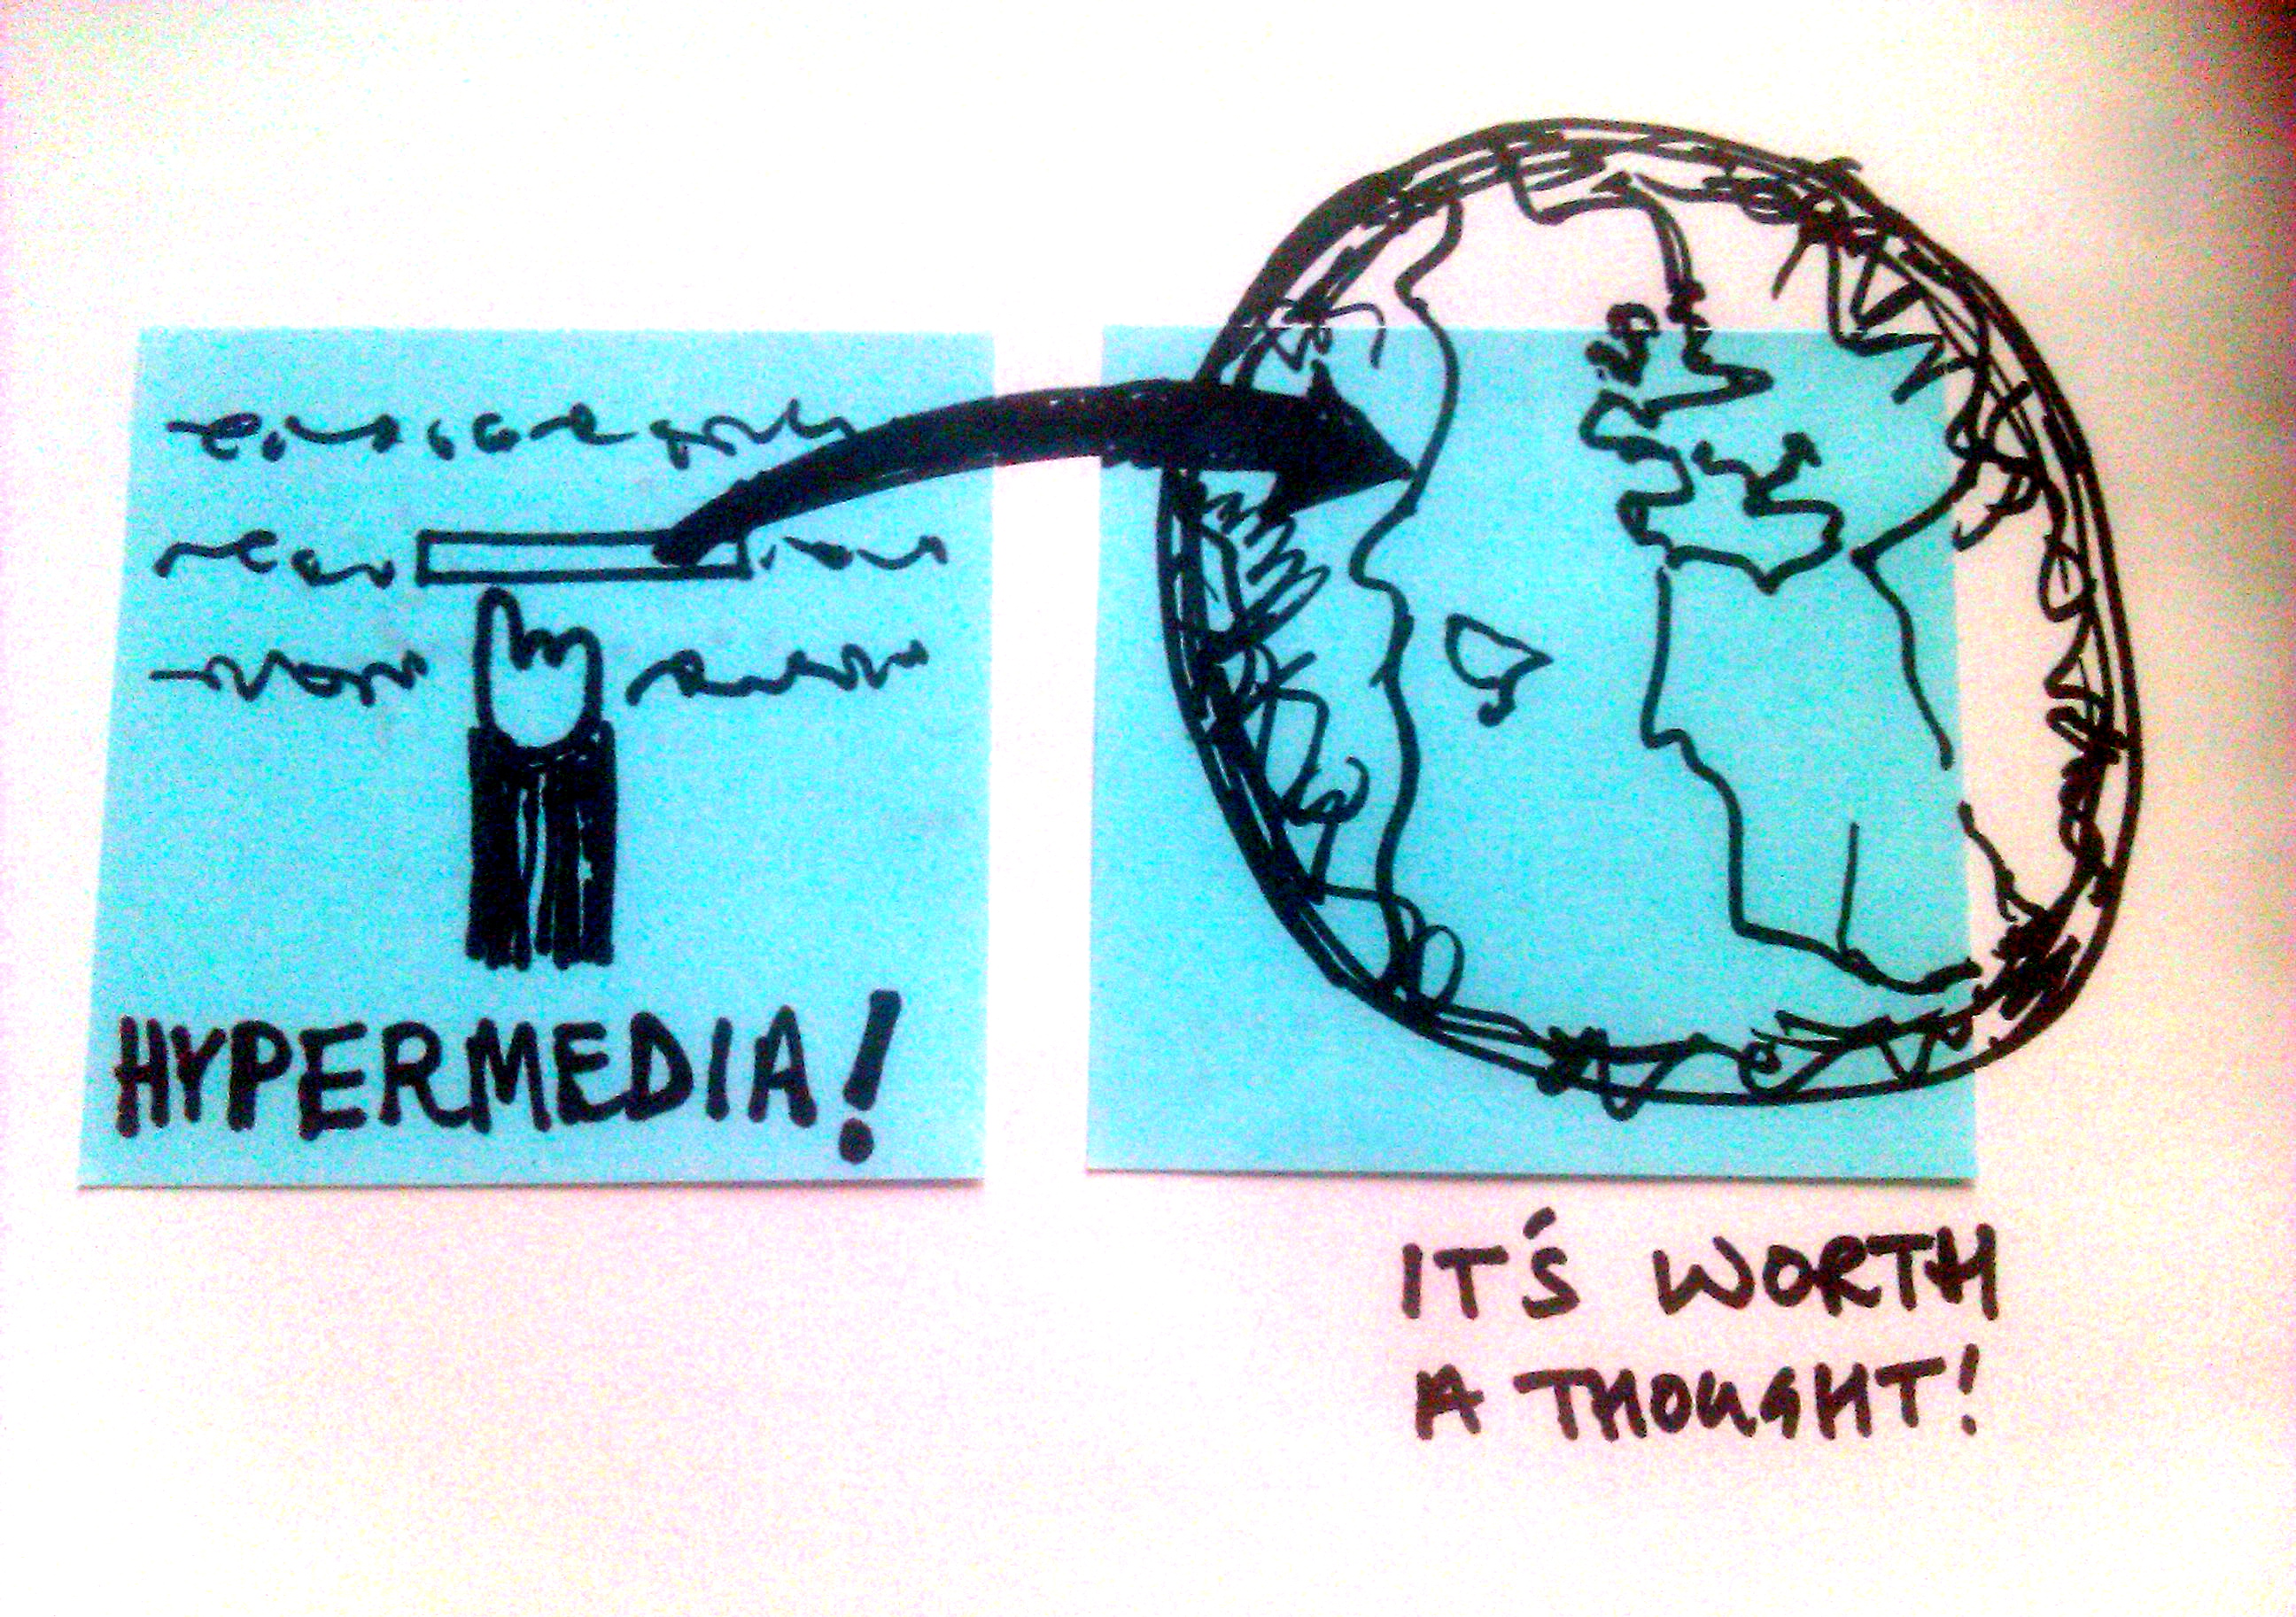 HYPERMEDIA!
IT'S WORTH
A THOUGHT!